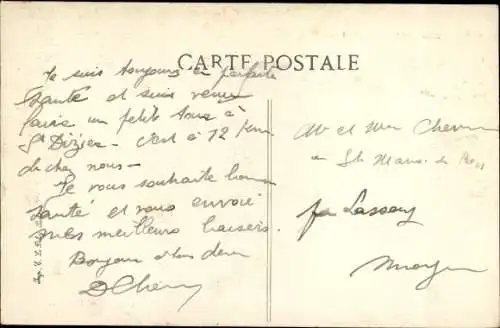 CARTE POSTALE
Je suis toujours en parfaite
santé et suis venu
faire un petit tour à
St Dizier - c'est à 12 km
de chez nous -
Je vous souhaite bonne
santé et vous envoie
mes meilleurs baisers.
Bonjour à tous deux
DChe
et
St Mars
par Lassay
Mayenne